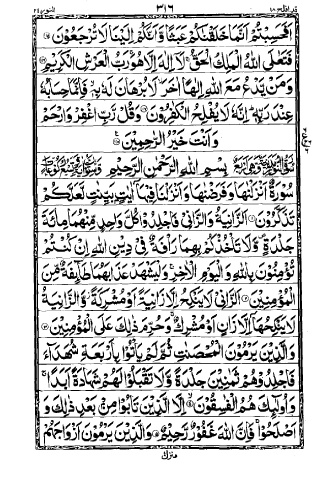 قد افلح ١٨ ٣١٦ النور ٢٤
اَفَحَسِبْتُمْ اَنَّمَا خَلَقْنٰكُمْ عَبَثًا وَّاَنَّكُمْ اِلَيْنَا لَا تُرْجَعُوْنَ
فَتَعٰلَى اللّٰهُ الْمَلِكُ الْحَقُّ لَآ اِلٰهَ اِلَّا هُوَ رَبُّ الْعَرْشِ الْكَرِيْمِ
وَمَنْ يَّدْعُ مَعَ اللّٰهِ اِلٰهًا اٰخَرَ لَا بُرْهَانَ لَهٗ بِهٖ فَاِنَّمَا حِسَابُهٗ
عِنْدَ رَبِّهٖ اِنَّهٗ لَا يُفْلِحُ الْكٰفِرُوْنَ وَقُلْ رَّبِّ اغْفِرْ وَارْحَمْ
وَاَنْتَ خَيْرُ الرّٰحِمِيْنَ
بِسْمِ اللّٰهِ الرَّحْمٰنِ الرَّحِيْمِ
سُوْرَةٌ اَنْزَلْنٰهَا وَفَرَضْنٰهَا وَاَنْزَلْنَا فِيْهَآ اٰيٰتٍ بَيِّنٰتٍ لَّعَلَّكُمْ
تَذَكَّرُوْنَ اَلزَّانِيَةُ وَالزَّانِيْ فَاجْلِدُوْا كُلَّ وَاحِدٍ مِّنْهُمَا مِائَةَ
جَلْدَةٍ وَّلَا تَاْخُذْكُمْ بِهِمَا رَاْفَةٌ فِيْ دِيْنِ اللّٰهِ اِنْ كُنْتُمْ
تُؤْمِنُوْنَ بِاللّٰهِ وَالْيَوْمِ الْاٰخِرِ وَلْيَشْهَدْ عَذَابَهُمَا طَآئِفَةٌ مِّنَ
الْمُؤْمِنِيْنَ اَلزَّانِيْ لَا يَنْكِحُ اِلَّا زَانِيَةً اَوْ مُشْرِكَةً وَّالزَّانِيَةُ
لَا يَنْكِحُهَآ اِلَّا زَانٍ اَوْ مُشْرِكٌ وَحُرِّمَ ذٰلِكَ عَلَى الْمُؤْمِنِيْنَ
وَالَّذِيْنَ يَرْمُوْنَ الْمُحْصَنٰتِ ثُمَّ لَمْ يَاْتُوْا بِاَرْبَعَةِ شُهَدَآءَ
فَاجْلِدُوْهُمْ ثَمٰنِيْنَ جَلْدَةً وَّلَا تَقْبَلُوْا لَهُمْ شَهَادَةً اَبَدًا
وَاُولٰٓئِكَ هُمُ الْفٰسِقُوْنَ اِلَّا الَّذِيْنَ تَابُوْا مِنْ بَعْدِ ذٰلِكَ وَ
اَصْلَحُوْا فَاِنَّ اللّٰهَ غَفُوْرٌ رَّحِيْمٌ وَالَّذِيْنَ يَرْمُوْنَ اَزْوَاجَهُمْ
منزل